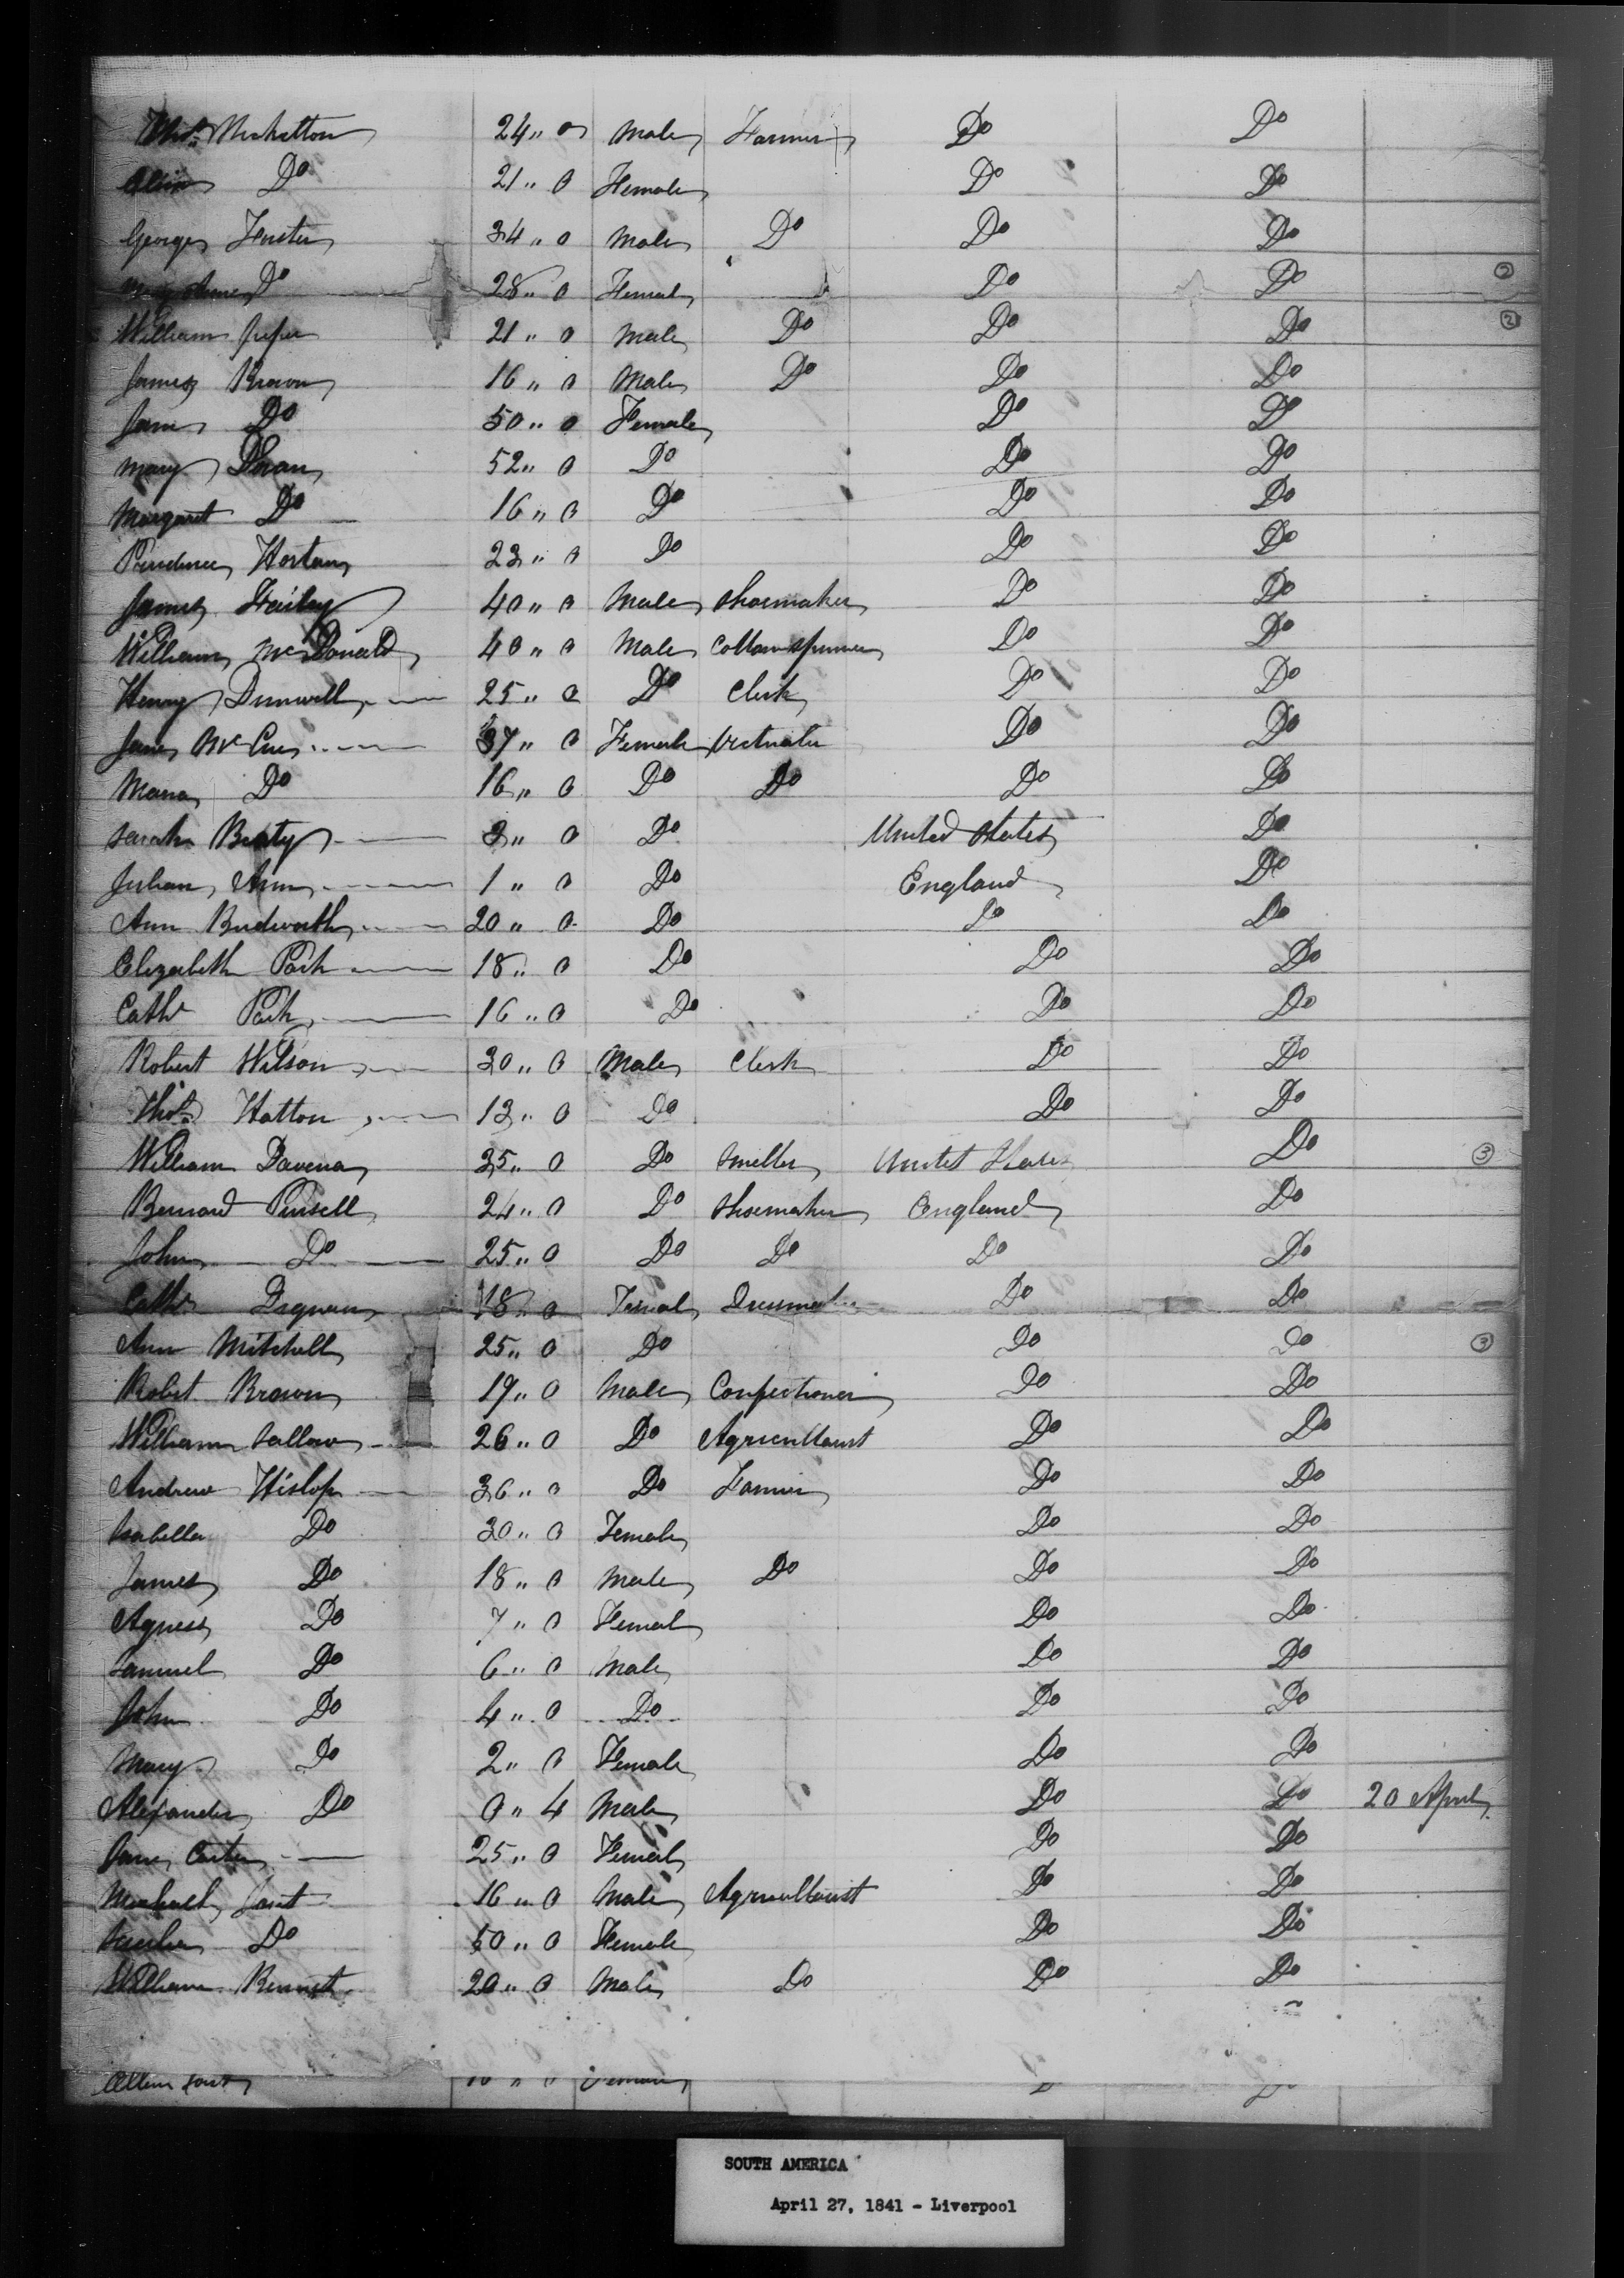 Thos. 24 " 0 Male Farmer Do Do
Do 21 " 0 Female Do Do
George Foster 34 " 0 Male Do Do Do
Mary Anne Do 28 " 0 Female Do Do 2
William 21 " 0 Male Do Do Do 2
James Brown 16 " 0 Male Do Do Do
Jane Do 50 " 0 Female Do Do
Mary Doran 52 " 0 Do Do Do
Margaret Do 16 " 0 Do Do Do
Prudence Horton 23 " 0 Do Do Do
James 40 " 0 Male Shoemaker Do Do
William McDonald 40 " 0 Male Cottonspinner Do Do
Henry Dunwell 25 " 0 Do Clerk Do Do
Jane McCue 37 " 0 Female Do Do
Maria Do 16 " 0 Do Do Do Do
Sarah Beaty 3 " 0 Do United States Do
Julian Ann 1 " 0 Do England Do
Ann Budworth 20 " 0 Do Do Do
Elizabeth Park 18 " 0 Do Do Do
Cathe Park 16 " 0 Do Do Do
Robert Wilson 30 " 0 Male Clerk Do Do
Thos. Hatton 13 " 0 Do Do Do
William 35 " 0 Do United States Do 3
Bernard Pursell 24 " 0 Do Shoemaker England Do
John Do 25 " 0 Do Do Do Do
Cathe Dagnan 18 " 0 Female Do Do
Ann Mitchell 25 " 0 Do Do Do 3
Robert Brown 19 " 0 Male Confectioner Do Do
William 26 " 0 Do Agricultourist Do Do
Andrew Hislop 36 " 0 Do Farmer Do Do
Isabella Do 30 " 0 Female Do Do
James Do 18 " 0 Male Do Do Do
Agness Do 7 " 0 Female Do Do
Samuel Do 6 " 0 Male Do Do
John Do 4 " 0 Do Do Do
Mary Do 2 " 0 Female Do Do
Alexander Do 0 " 4 Male Do Do 20 April
Jane Carter 25 " 0 Female Do Do
Michael 16 " 0 Male Agricultourist Do Do
Do 50 " 0 Female Do Do
William Bennet 20 " 0 Male Do Do Do
SOUTH AMERICA
April 27, 1841 - Liverpool